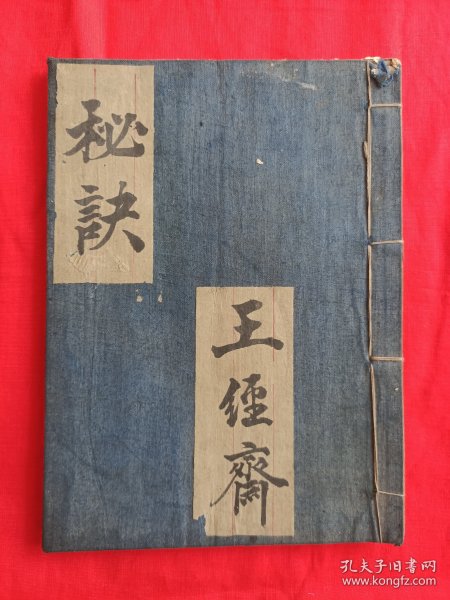 秘訣
王經齋
孔夫子旧书网
www.kongfz.com